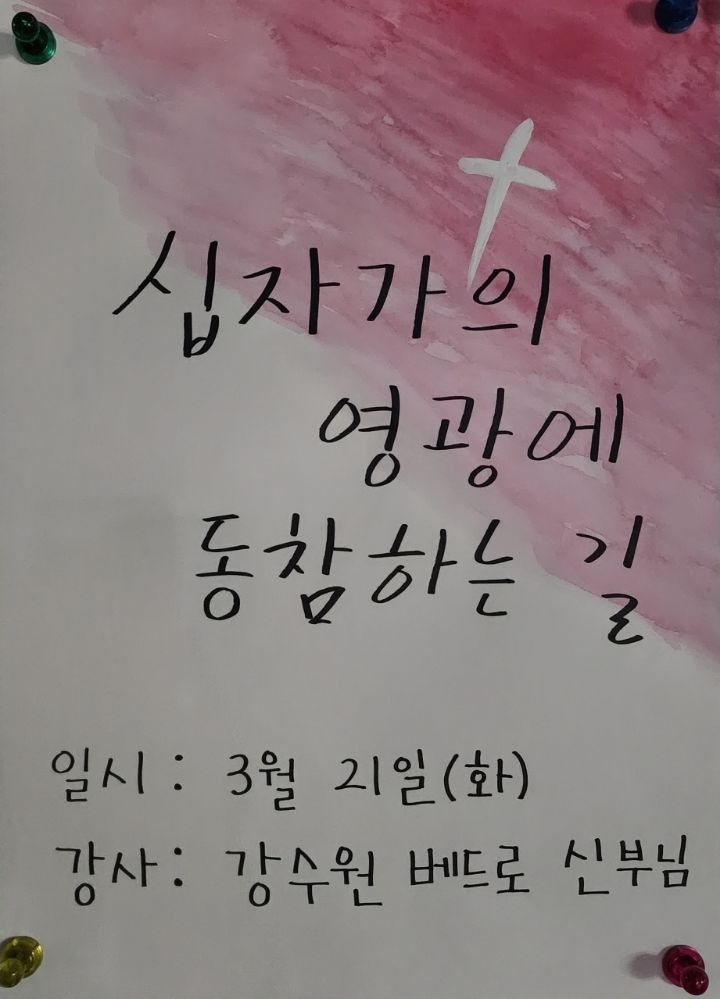 십자가의
영광에
동참하는 길
일시 : 3월 21일(화)
강사 : 강수원 베드로 신부님